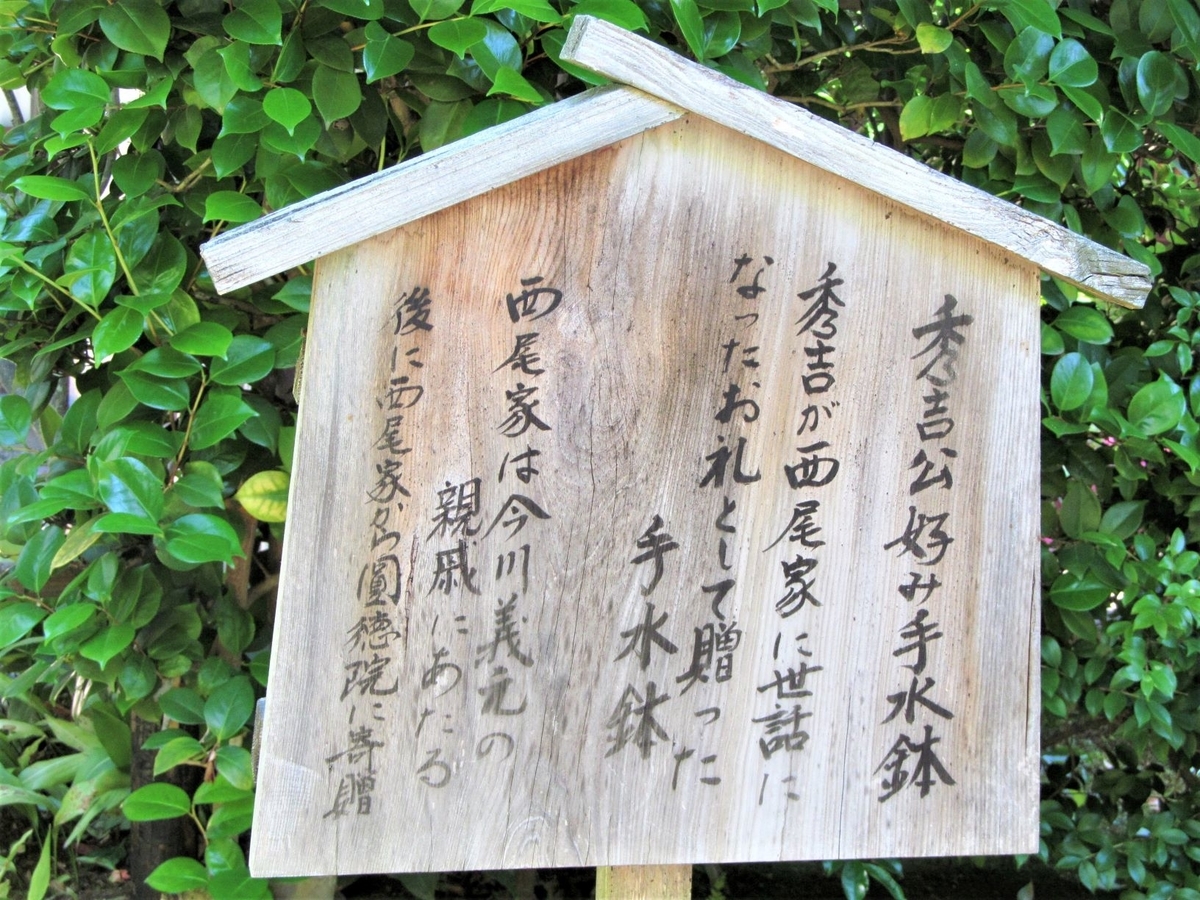 秀吉公好み手水鉢
秀吉が西尾家に世話に
なったお礼として贈った
手水鉢
西尾家は今川義元の
親戚にあたる
後に西尾家から圓徳院に寄贈